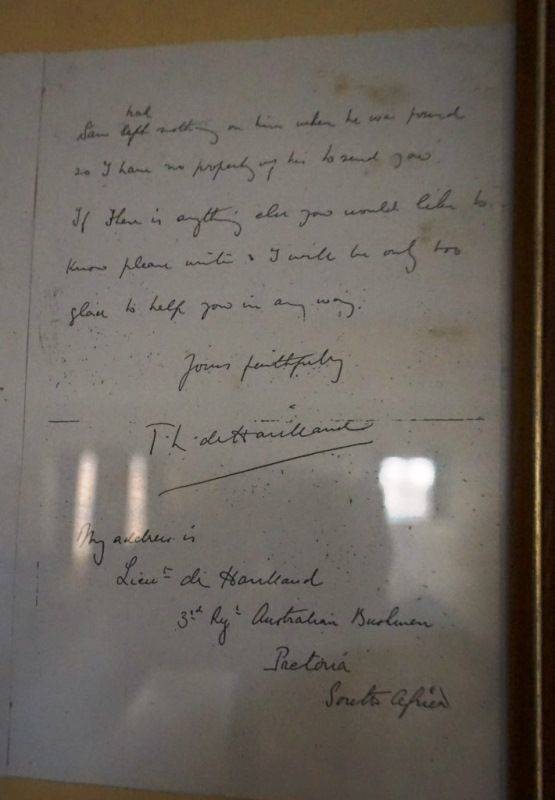 had
Sam left nothing on him when he was found
so I have no property of his to send you.
If there is anything else you would like to
know please write & I will be only too
glad to help you in any way.
Yours faithfully
T. L. de Havilland
My address is
Lieut de Havilland
3rd Regt Australian Bushmen
Pretoria
South Africa